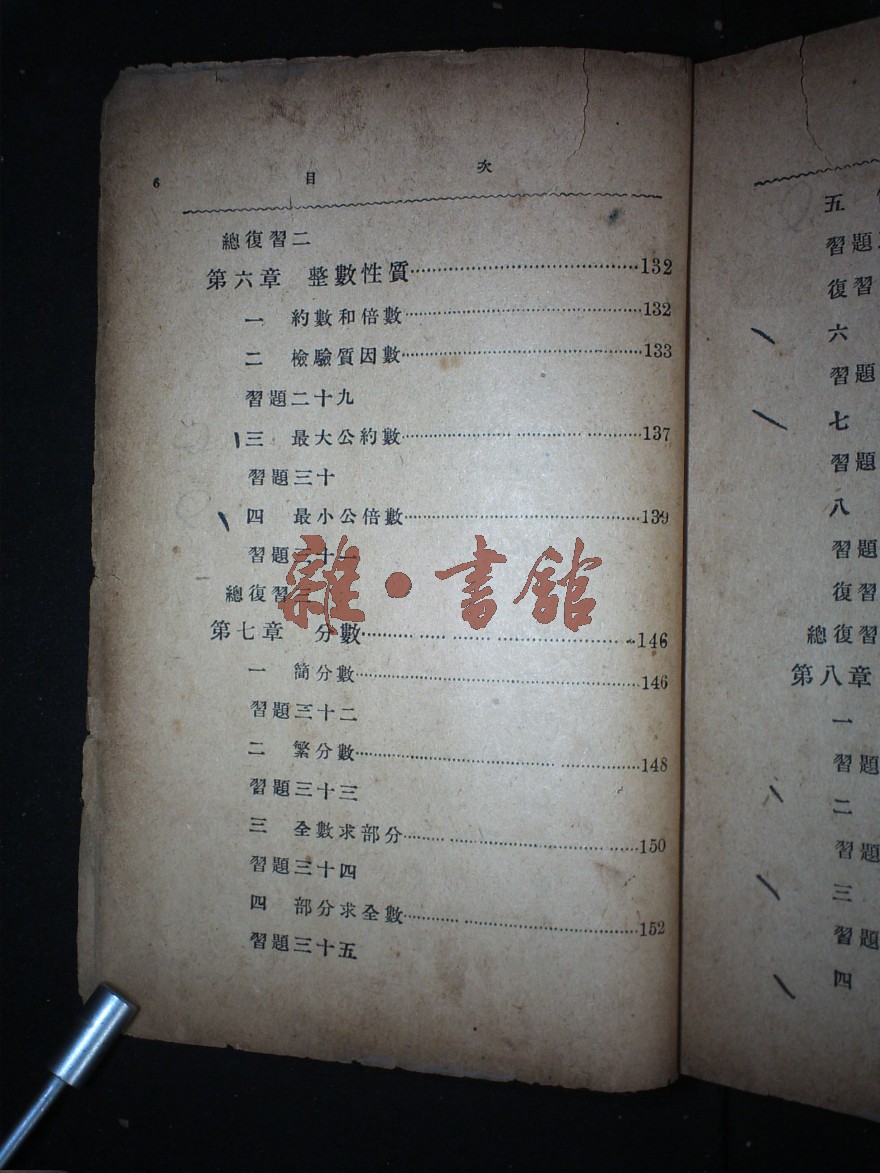 6 目 次
總復習二
第六章 整數性質……132
一 約數和倍數……132
二 檢驗質因數……133
習題二十九
三 最大公約數……137
習題三十
四 最小公倍數……139
習題三十一
總復習三
第七章 分數……146
一 簡分數……146
習題三十二
二 繁分數……148
習題三十三
三 全數求部分……150
習題三十四
四 部分求全數……152
習題三十五
雜·書館
五
習題
復習
六
習題
七
習題
八
習題
復習
總復習
第八章
一
習題
二
習題
三
習題
四